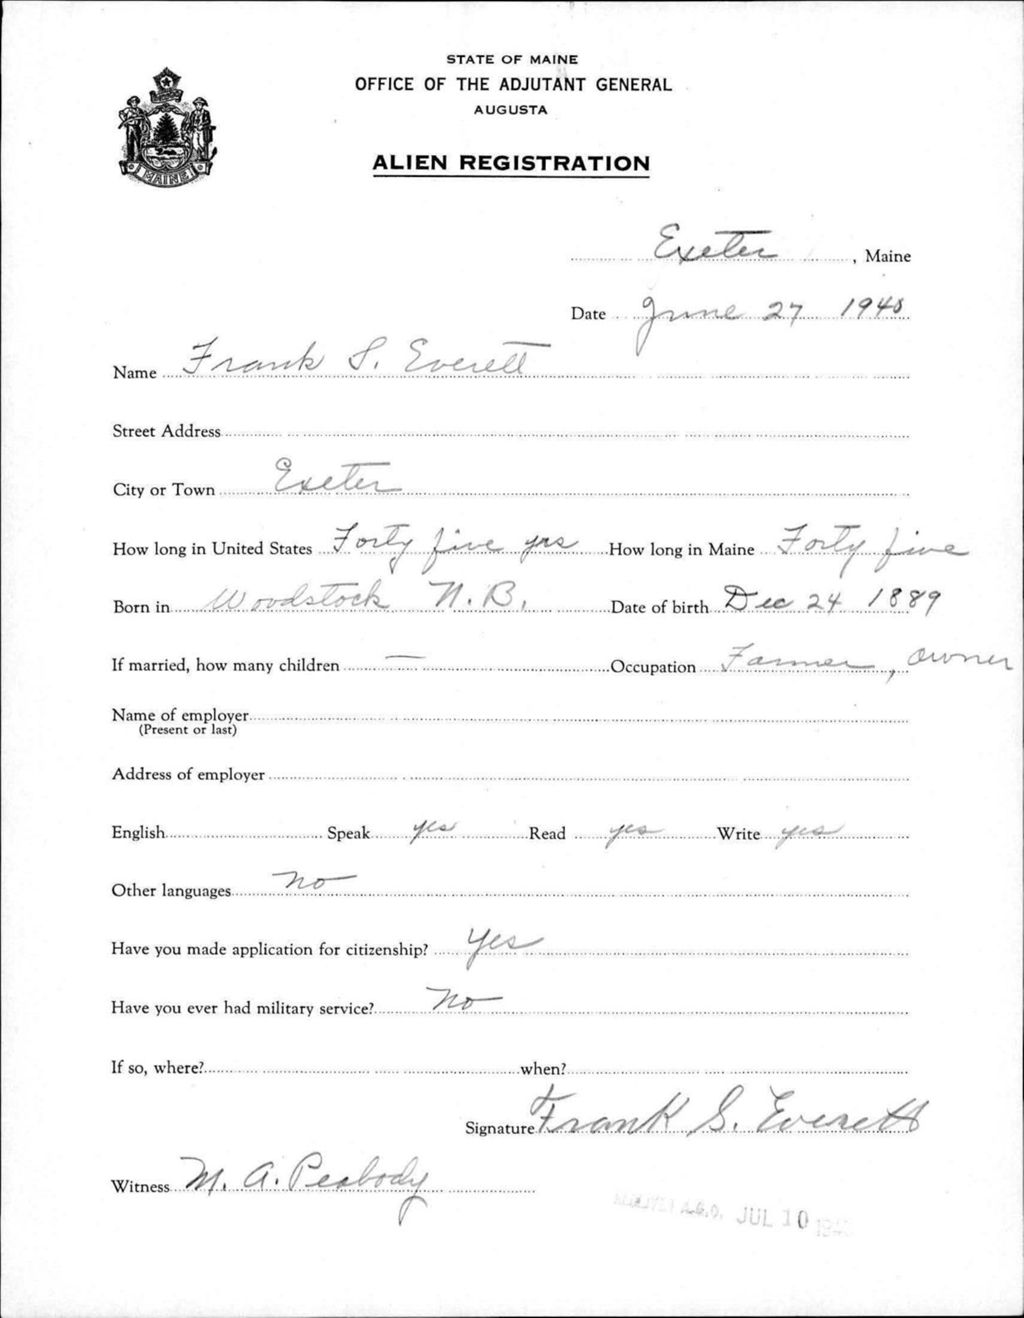 STATE OF MAINE
OFFICE OF THE ADJUTANT GENERAL
AUGUSTA
MAINE
ALIEN REGISTRATION
Exeter, Maine
Date June 27 1940
Name Frank S. Everett
Street Address
City or Town Exeter
How long in United States Forty five yrs How long in Maine Forty five
Born in Woodstock N.B. Date of birth Dec 24 1889
If married, how many children — Occupation Farmer, owner
Name of employer
(Present or last)
Address of employer
English Speak yes Read yes Write yes
Other languages no
Have you made application for citizenship? Yes
Have you ever had military service? No
If so, where? when?
Signature Frank S. Everett
Witness M. A. Peabody
RECEIVED A.G.O. JUL 10 1940